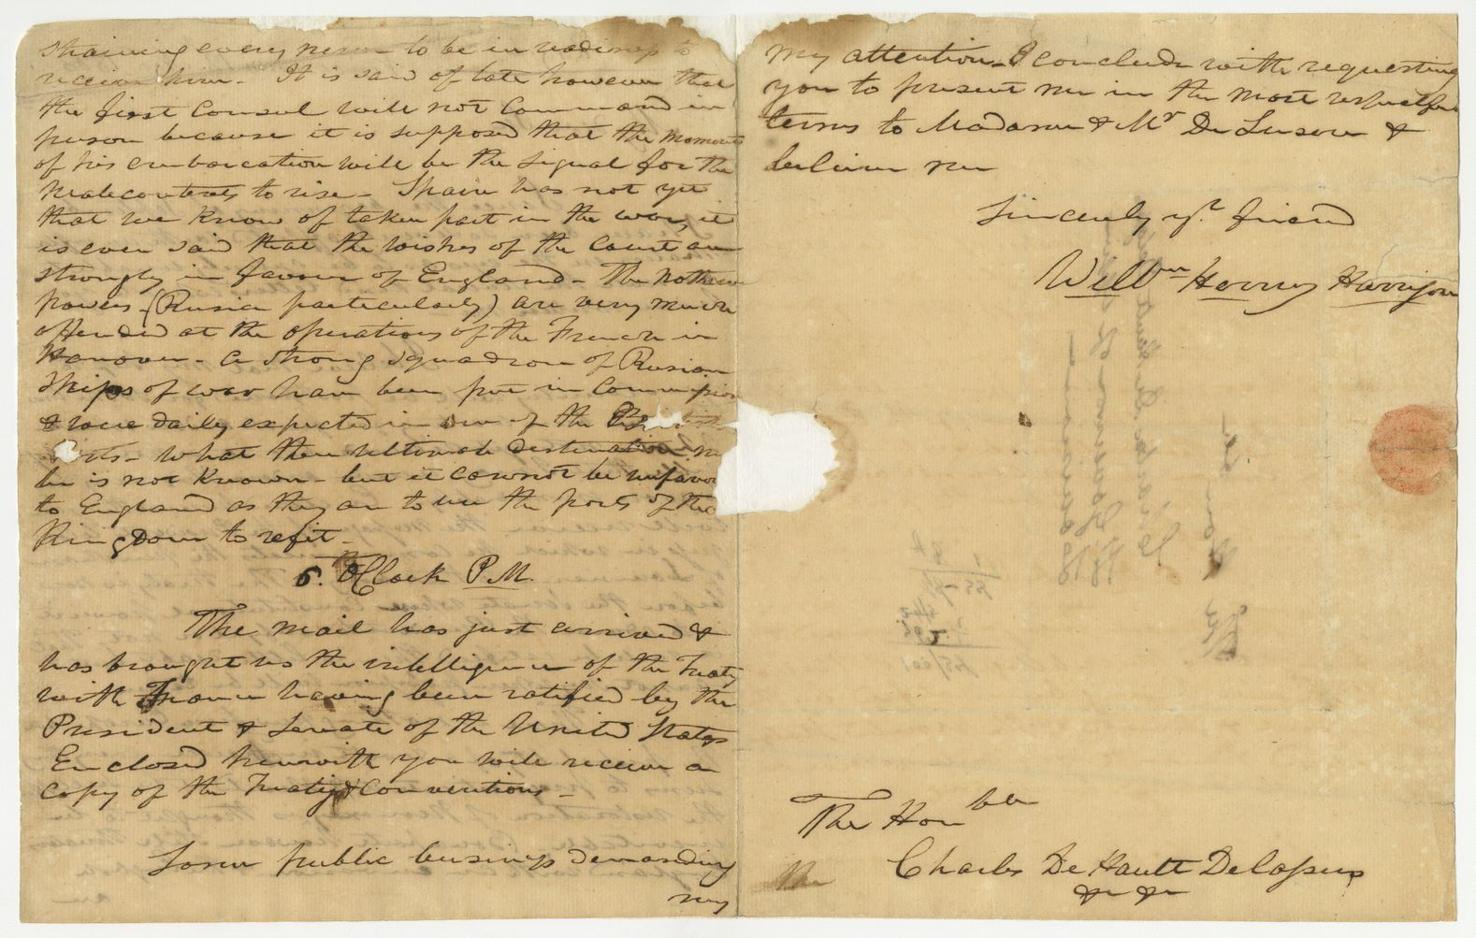 straining every nerve to be in readiness to
receive him - It is said of late however that
the first Consul will not Command in
person because it is supposed that the moment
of his embarcation will be the signal for the
Malecontents to rise - Spain has not yet
that we know of taken part in the war, it
is even said that the wishes of the Court are
strongly in favour of England - The Nothern
powers - (Russia particularly) are very much
offended at the operations of the French in
Hanover - a strong squadron of Russian
Ships of war have been put in Commission
& were daily expected in one of the
what their ultimate destination
be is not known - but it cannot be unfavor
to England as they are to use the ports of that
Kingdom to refit -
5. OClock P.M.
The mail has just arrived &
has brought us the intelligence of the Treaty
with France having been ratified by the
President & Senate of the United States
Enclosed herewith you will receive a
copy of the Treaty & Conventions -
Some public business demanding
my
my attention - I conclude with requesting
you to present me in the most respectful
terms to Madame & Mr De Lusere &
believe me
Sincerely yr. friend
Willm Henry Harrison
The Honble
Charles De Hault Delassus
&c &c
The